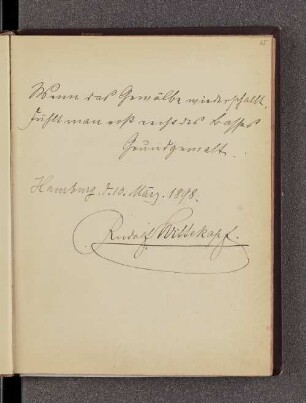 Wenn das Gewölbe wiederschallt,
Fühlt man erst recht des Basses
Grundgewalt.
Hamburg. d. 10. März. 1898.
Rudolf Wittekopf.